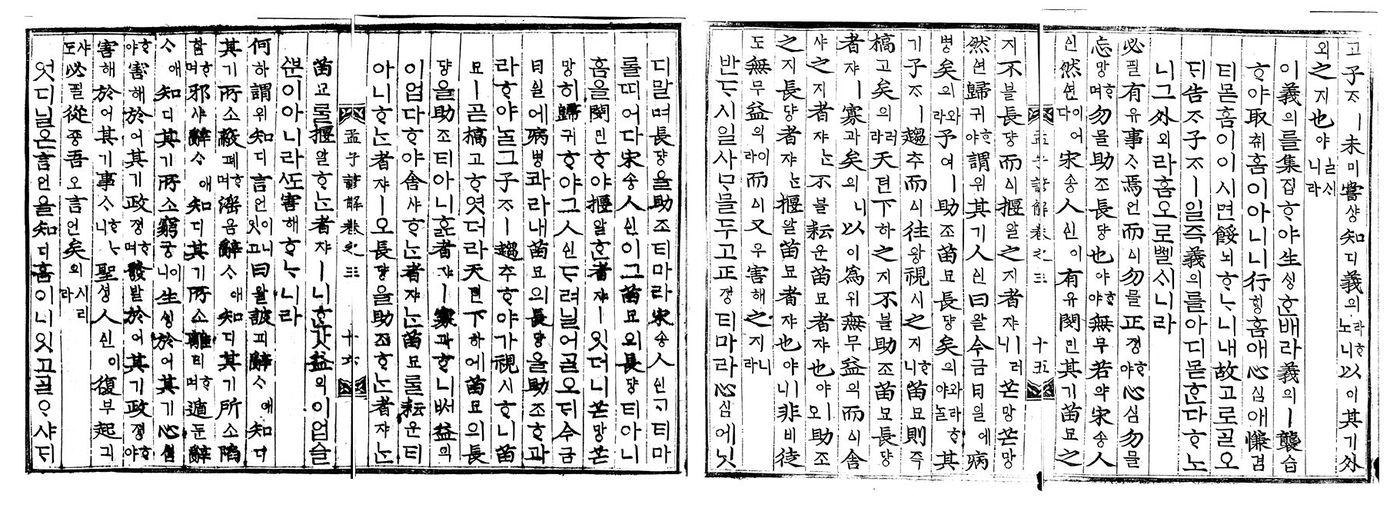 고子ᄌᆞㅣ未미嘗샹知디義의라ᄒᆞ노니以이其기外
외之지也야ᄂᆞᆯᄉᆡ니라
이義의를集집ᄒᆞ야生ᄉᆡᆼᄒᆞᆫ배라義의ㅣ襲습
ᄒᆞ야取취홈이아니니行ᄒᆡᆼ홈애心심애慊겸
티몯홈이이시면餒뇌ᄒᆞᄂᆞ니내故고로닐오
ᄃᆡ告고子ᄌᆞㅣ일즉義의를아디몯ᄒᆞᆫ다ᄒᆞ노
니그外외라홈오로ᄡᅥᆯᄉᆡ니라
必필有유事ᄉᆞ焉언而ᅀᅵ勿믈正졍ᄒᆞ야心심勿믈
忘망ᄒᆞ며勿믈助조長댱也야ᄒᆞ야無무若약宋송人
孟子諺解卷之三 十五
신然연이어다宋송人신이有유閔민其기苗묘之
지不블長댱而ᅀᅵ揠알之지者쟈ㅣ러니芒망芒망
然연歸귀ᄒᆞ야謂위其기人신曰왈今금日일에病
병矣의와라予여ㅣ助조苗묘長댱矣의와라ᄒᆞ야ᄂᆞᆯ其
기子ᄌᆞㅣ趨추而ᅀᅵ往왕視시之지ᄒᆞ니苗묘則즉
槁고矣의러라天텬下하之지不블助조苗묘長댱
者쟈ㅣ寡과矣의니以이為위無무益익而ᅀᅵ舍
샤之지者쟈ᄂᆞᆫ不블耘운苗묘者쟈也야ㅣ오助조
之지長댱者쟈ᄂᆞᆫ揠알苗묘者쟈也야ㅣ니非비徒
도無무益익이라而ᅀᅵ又우害해之지니라
반ᄃᆞ시일사ᄆᆞᆷ을두고正졍티마라心심에닛
디말며長댱을助조티마라宋송人신ᄀᆞ티마
롤띠어다宋송人신이그苗묘의長댱티아니
홈을閔민ᄒᆞ야揠알ᄒᆞᆫ者쟈ㅣ잇더니芒망芒
망히歸귀ᄒᆞ야그人신ᄃᆞ려닐어ᄀᆞᆯ오ᄃᆡ今금
日일에病병과라내苗묘의長댱을助조ᄒᆞ과
라ᄒᆞ야ᄂᆞᆯ그子ᄌᆞㅣ趨추ᄒᆞ야가視시ᄒᆞ니苗
묘ㅣ곧槁고ᄒᆞ엿더라天텬下하에苗묘의長
댱을助조티아니ᄒᆞᆯ者쟈ㅣ寡과ᄒᆞ니ᄡᅥ益익
이업다ᄒᆞ야舍샤ᄒᆞᄂᆞᆫ者쟈ᄂᆞᆫ苗묘를耘운티
아니ᄒᆞᄂᆞᆫ者쟈ㅣ오長댱을助조ᄒᆞᄂᆞᆫ者쟈ᄂᆞᆫ
孟子諺解卷之三 十六
苗묘를揠알ᄒᆞᄂᆞᆫ者쟈ㅣ니ᄒᆞᆫ갓益익이업슬
ᄲᅮᆫ이아니라ᄯᅩ害해ᄒᆞᄂᆞ니라
何하謂위知디言언이니잇고曰왈詖피辭ᄉᆞ애知디
其기所소蔽폐ᄒᆞ며淫음辭ᄉᆞ애知디其기所소陷
함ᄒᆞ며邪샤辭ᄉᆞ애知디其기所소離리ᄒᆞ며遁둔辭
ᄉᆞ애知디其기所소窮궁이니生ᄉᆡᆼ於어其기心심
ᄒᆞ야害해於어其기政졍ᄒᆞ며發발於어其기政졍ᄒᆞ야
害해於어其기事ᄉᆞᄒᆞᄂᆞ니聖셩人신이復부起긔
ᄒᆞ샤도必필從죵吾오言언矣의시리라
엇디닐온言언을知디홈이니잇고ᄀᆞᆯᄋᆞ샤ᄃᆡ